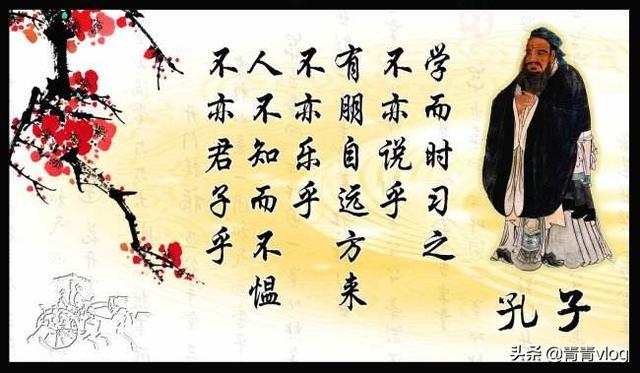 学而时习之
不亦说乎
有朋自远方来
不亦乐乎
人不知而不愠
不亦君子乎
孔子
头条 @青青vlog